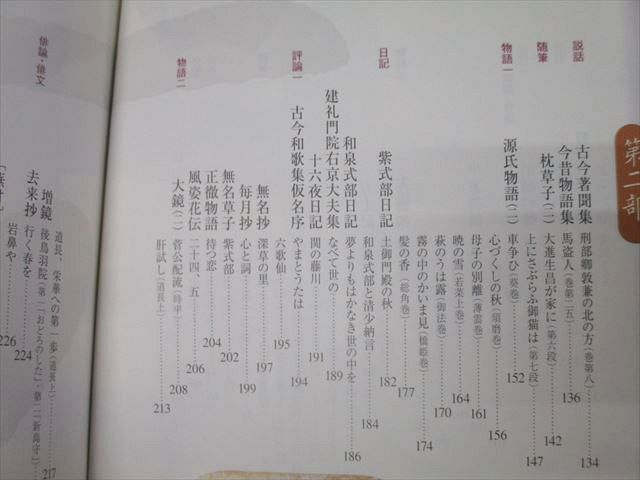 第二部
説話
古今著聞集 刑部卿敦兼の北の方（巻第八） 134
今昔物語集 馬盗人（巻第二五） 136
随筆
枕草子（二） 大進生昌が家に（第六段） 142
上にさぶらふ御猫は（第七段） 147
物語一
源氏物語（二） 車争ひ（葵巻） 152
心づくしの秋（須磨巻） 156
母子の別離（薄雲巻） 161
暁の雪（若菜上巻） 164
萩のうは露（御法巻） 170
霧の中のかいま見（橋姫巻） 174
髪の香（総角巻） 177
日記
紫式部日記 土御門殿の秋 182
和泉式部と清少納言 184
和泉式部日記 夢よりもはかなき世の中を 186
建礼門院右京大夫集 なべて世の 189
十六夜日記 関の藤川 191
評論一
古今和歌集仮名序 やまとうたは 194
六歌仙 195
無名抄 深草の里 197
毎月抄 心と詞 199
無名草子 紫式部 202
正徹物語 待つ恋 204
風姿花伝 二十四、五 206
物語二
大鏡（二） 菅公配流（時平） 208
肝試し（道長上） 213
道長、栄華への第一歩（道長上） 217
増鏡 後鳥羽院（第一「おどろのした」・第二「新島守」）
俳論・俳文
去来抄 行く春を 224
岩鼻や 226